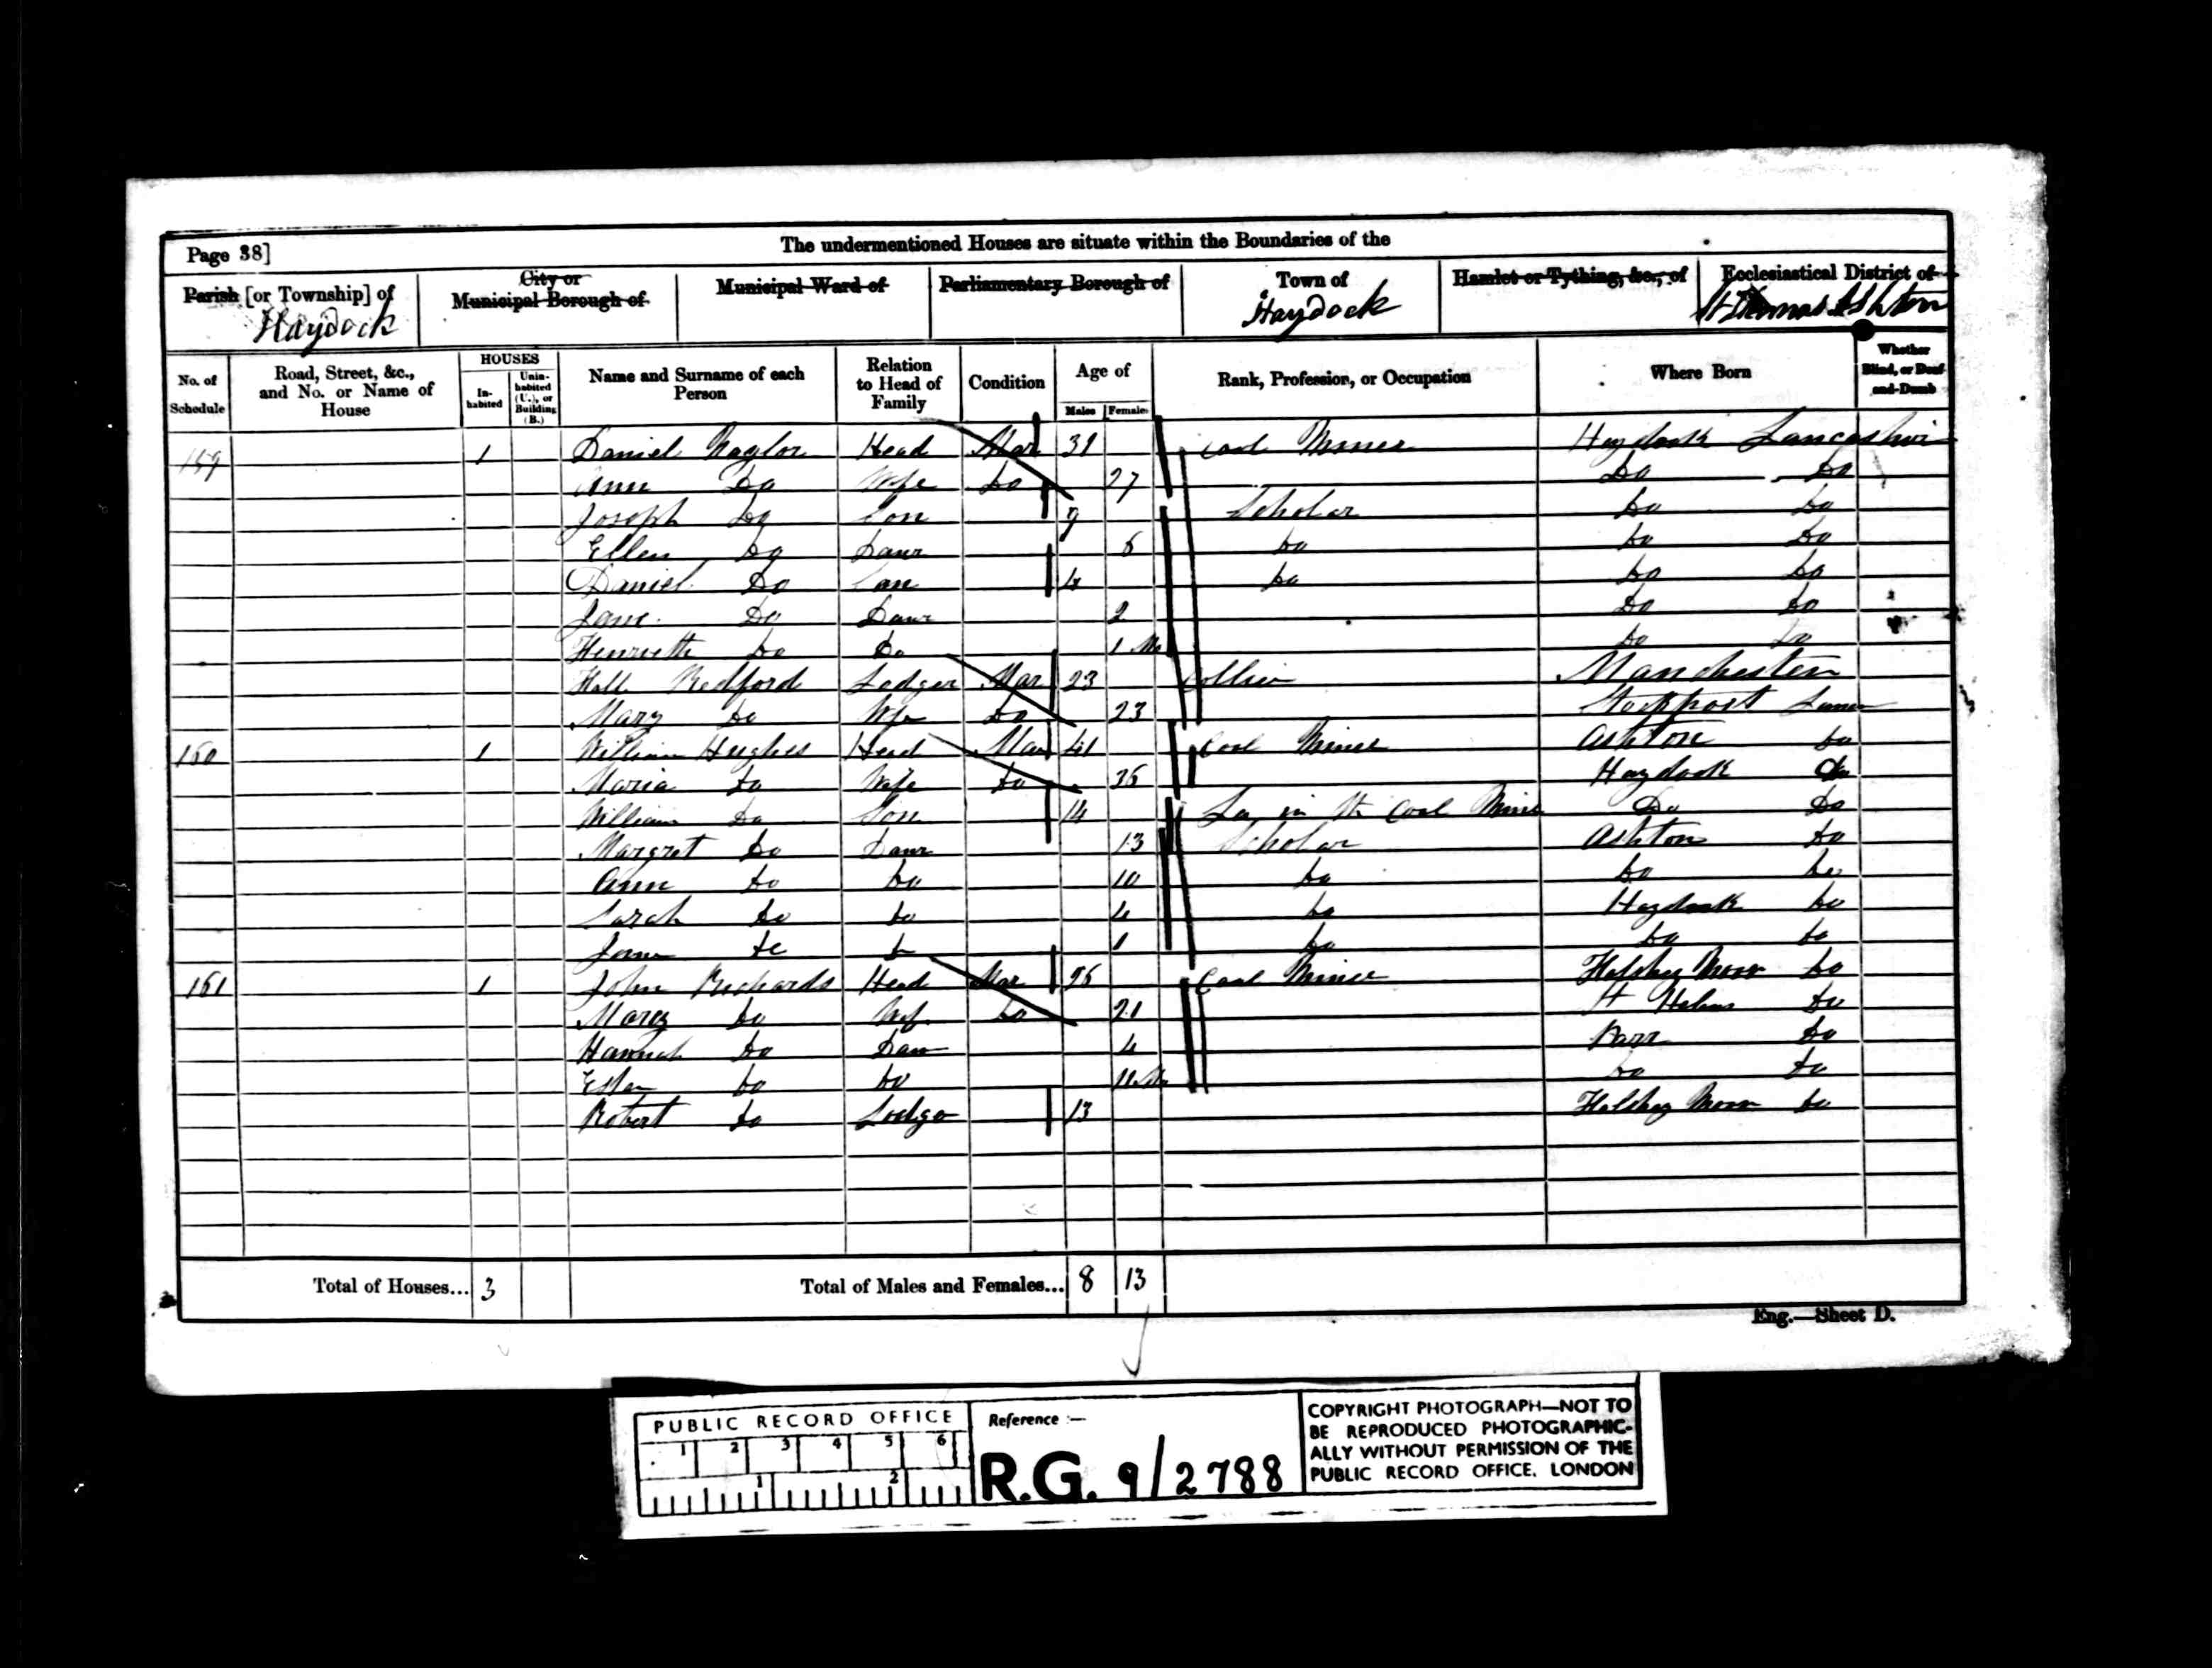 Page 38]
The undermentioned Houses are situate within the Boundaries of the
Parish [or Township] of
Haydock
City or
Municipal Borough of
Municipal Ward of
Parliamentary Borough of
Town of
Haydock
Hamlet or Tything, &c., of
Ecclesiastical District of
St Thomas Ashton
No. of Schedule
Road, Street, &c., and No. or Name of House
HOUSES
Inhabited
Uninhabited (U.), or Building (B.)
Name and Surname of each Person
Relation to Head of Family
Condition
Age of
Males
Females
Rank, Profession, or Occupation
Where Born
Whether Blind, or Deaf-and-Dumb
159 1 Daniel Naylor Head Mar 31 Coal Miner Haydock Lancashire
Ann Do Wife Do 27 Do Do
Joseph Do Son 9 Scholar Do Do
Ellen Do Daur 6 Do Do Do
Daniel Do Son 4 Do Do Do
Jane Do Daur 2 Do Do
Henrietta Do Do 1 Mo Do Do
Hall Redford Lodger Mar 23 Collier Manchester
Mary Do Wife Do 23 Stockport
160 1 William Hughes Head Mar 41 Coal Miner Ashton Do
Maria Do Wife Do 36 Haydock Do
William Do Son 14 in the Coal Mine Do Do
Margret Do Daur 13 Scholar Ashton Do
Ann Do Do 10 Do Do Do
Sarah Do Do 4 Do Haydock Do
Jane Do Do 1 Do Do Do
161 1 John Richards Head Mar 26 Coal Miner Moor Do
Mary Do Wife Do 21 St Helens Do
Hannah Do Daur 4 Parr Do
Do Do 11 Mo Do Do
Robert Do Lodger 13 Moor Do
Total of Houses... 3
Total of Males and Females... 8 13
Eng.—Sheet D.
PUBLIC RECORD OFFICE
1 2 3 4 5 6
1 2
Reference :—
R.G. 9/2788
COPYRIGHT PHOTOGRAPH—NOT TO
BE REPRODUCED PHOTOGRAPHIC-
ALLY WITHOUT PERMISSION OF THE
PUBLIC RECORD OFFICE. LONDON